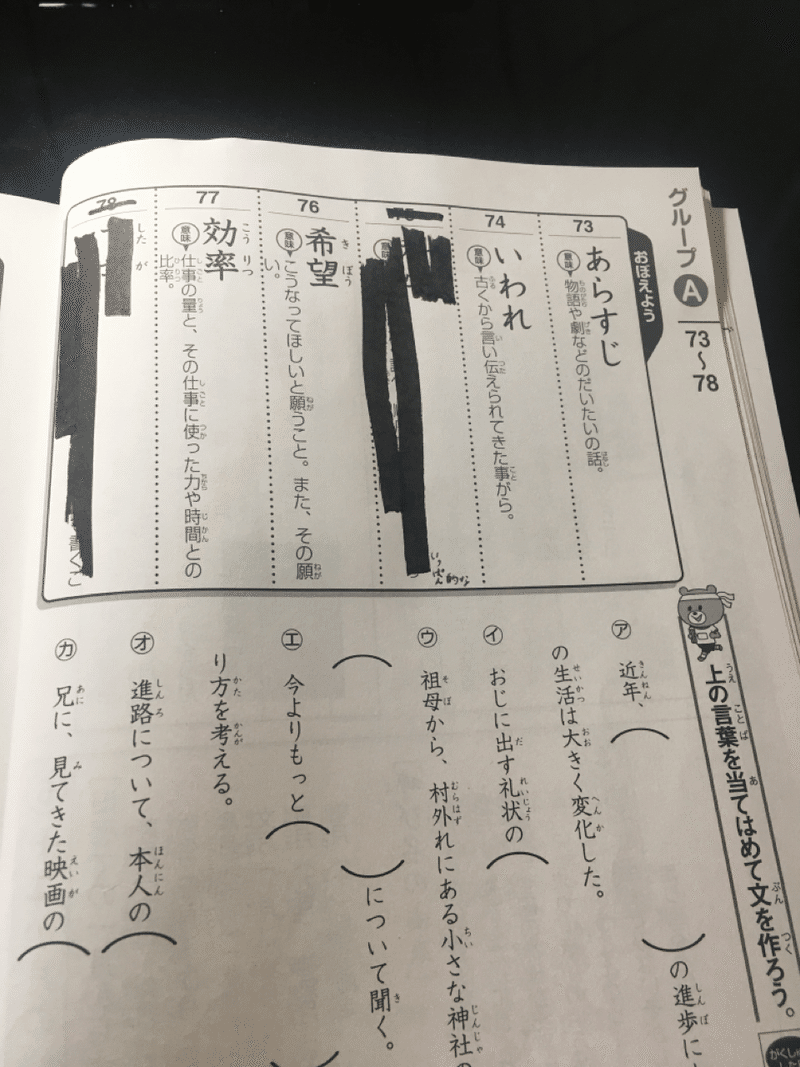 グループ A 73〜78
おぼえよう
73
あらすじ
意味 物語や劇などのだいたいの話。
74
いわれ
意味 古くから言い伝えられてきた事がら。
いっぱん的な
76
希望
意味 こうなってほしいと願うこと。また、その願
い。
77
効率
意味 仕事の量と、その仕事に使った力や時間との
比率。
78
書くこ
上の言葉を当てはめて文を作ろう。
ア 近年、( )の進歩に
の生活は大きく変化した。
イ おじに出す礼状の(
ウ 祖母から、村外れにある小さな神社の
( )について聞く。
エ 今よりもっと(
り方を考える。
オ 進路について、本人の(
カ 兄に、見てきた映画の(